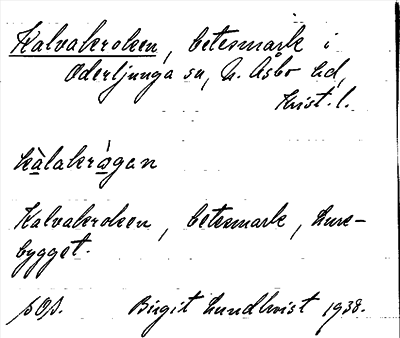 Kalvakroken, betesmark i
Oderljunga sn, N. Åsbo hd,
Krist. l.
kàlakrágan
Kalvakroken, betesmark,
bygget.
Birgit Lundkvist 1938.